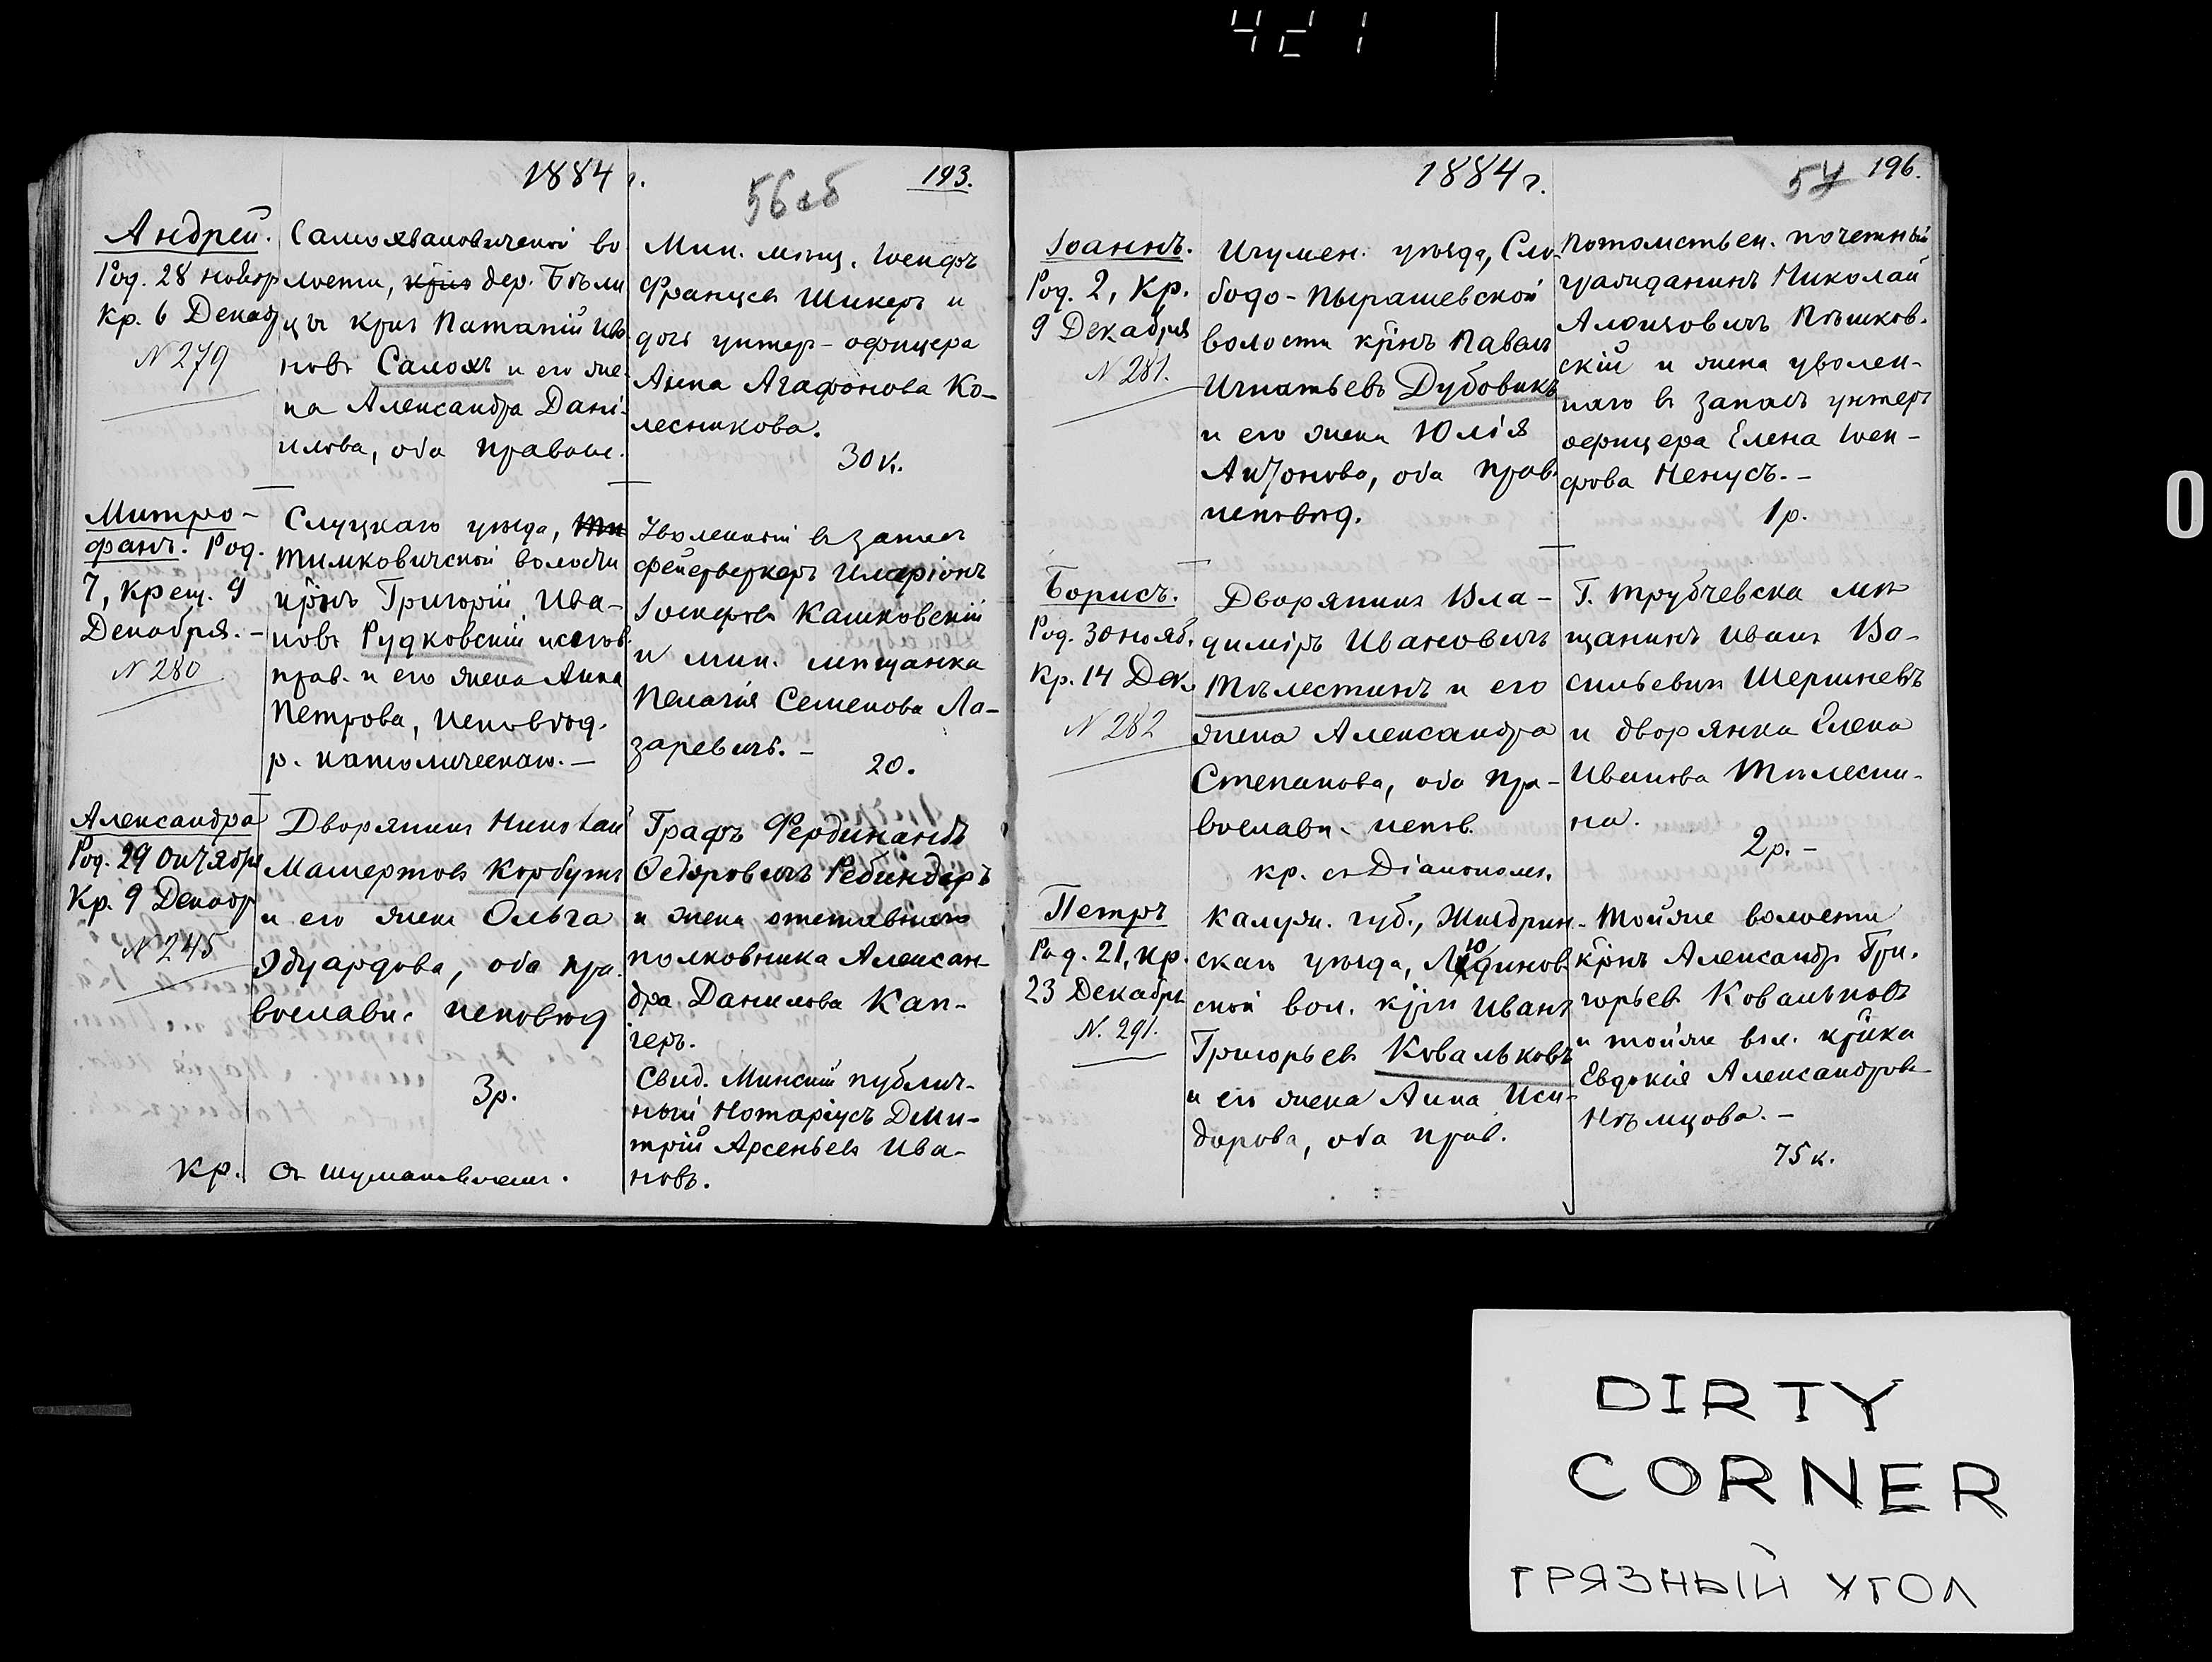 421
1884 г.
56об
193.
Андрей.
Род. 28 ноябр
Кр. 6 Декабр
N 279
Самохваловичской во
лости, дер. Бѣли
чы крнъ Потапій Ива
новъ Салохъ и его же-
на Александра Дани-
илова, оба правосл.
Мин. мѣщ. Іосифъ
Францевъ Шикеръ и
дочь унтер-офицера
Анна Агафонова Ко-
лесникова.
30 к.
Митро-
фанъ. Род.
7, Крещ. 9
Декабря. -
N 280
Слуцкаго уѣзда,
Тимковичской волости
крнъ Григорій Ива-
новъ Рудковскій исповѣ
прав. и его жена Анна
Петрова, исповѣд.
р. католическаго. -
Уволенный въ запасъ
фейерверкеръ Иларіонъ
Іосифовъ Кашковскій
и мин. мѣщанка
Пелагія Семенова Ла-
заревичъ. -
20.
Александра
Род. 29 Октября
Кр. 9 Декабр
N 245
Дворянинъ Николай
Корбутъ
и его жена Ольга
Эдуардова, оба пра-
вославн. исповѣд
3р.
Кр.
Графъ Фердинандъ
Ѳедоровичъ Ребиндеръ
и жена отставного
полковника Алексан-
дра Данилова Кан-
геръ.
Свид. Минскій публич-
ный Нотаріусъ Дми-
трій Арсеньевъ Ива-
новъ.
1884 г.
57
196.
Іоаннъ.
Род. 2, Кр.
9 Декабря
N 281.
Игумен. уѣзда, Сло-
бодо-Пырашевской
волости крнъ Павелъ
Игнатьевъ Дубовикъ
и его жена Юлія
Антонова, оба прав.
исповѣд.
Потомствен. почетный
гражданинъ Николай
Алоизовичъ Пѣшков-
скій и жена уволен-
наго въ запасъ унтеръ
офицера Елена Іоси-
фова Ненусъ. -
1р.
Борисъ.
Род. 30 нояб.
Кр. 14 Дек.
N 282
Дворянинъ Вла-
диміръ Ивановичъ
Тѣлестинъ и его
жена Александра
Степанова, оба пра-
вославн. испов.
Г. Трубчевска мѣ
щанинъ Иванъ Ва-
сильевичъ Шершневъ
и дворянка Елена
Иванова Тѣлести-
на.
2р. -
кр.
Петръ
Род. 21, кр.
23 Декабря
N. 291.
Калуж. губ., Жиздрин-
скаго уѣзда, Людинов-
ской вол. крнъ Иванъ
Григорьевъ Ковальковъ
и его жена Анна Иси-
дорова, оба прав.
Той же волости
крнъ Александръ Гри-
горьевъ Ковальковъ
и той же вол. крнка
Евдокія Александрова
Нѣмцова. -
75 к.
0
DIRTY
CORNER
ГРЯЗНЫЙ УГОЛ